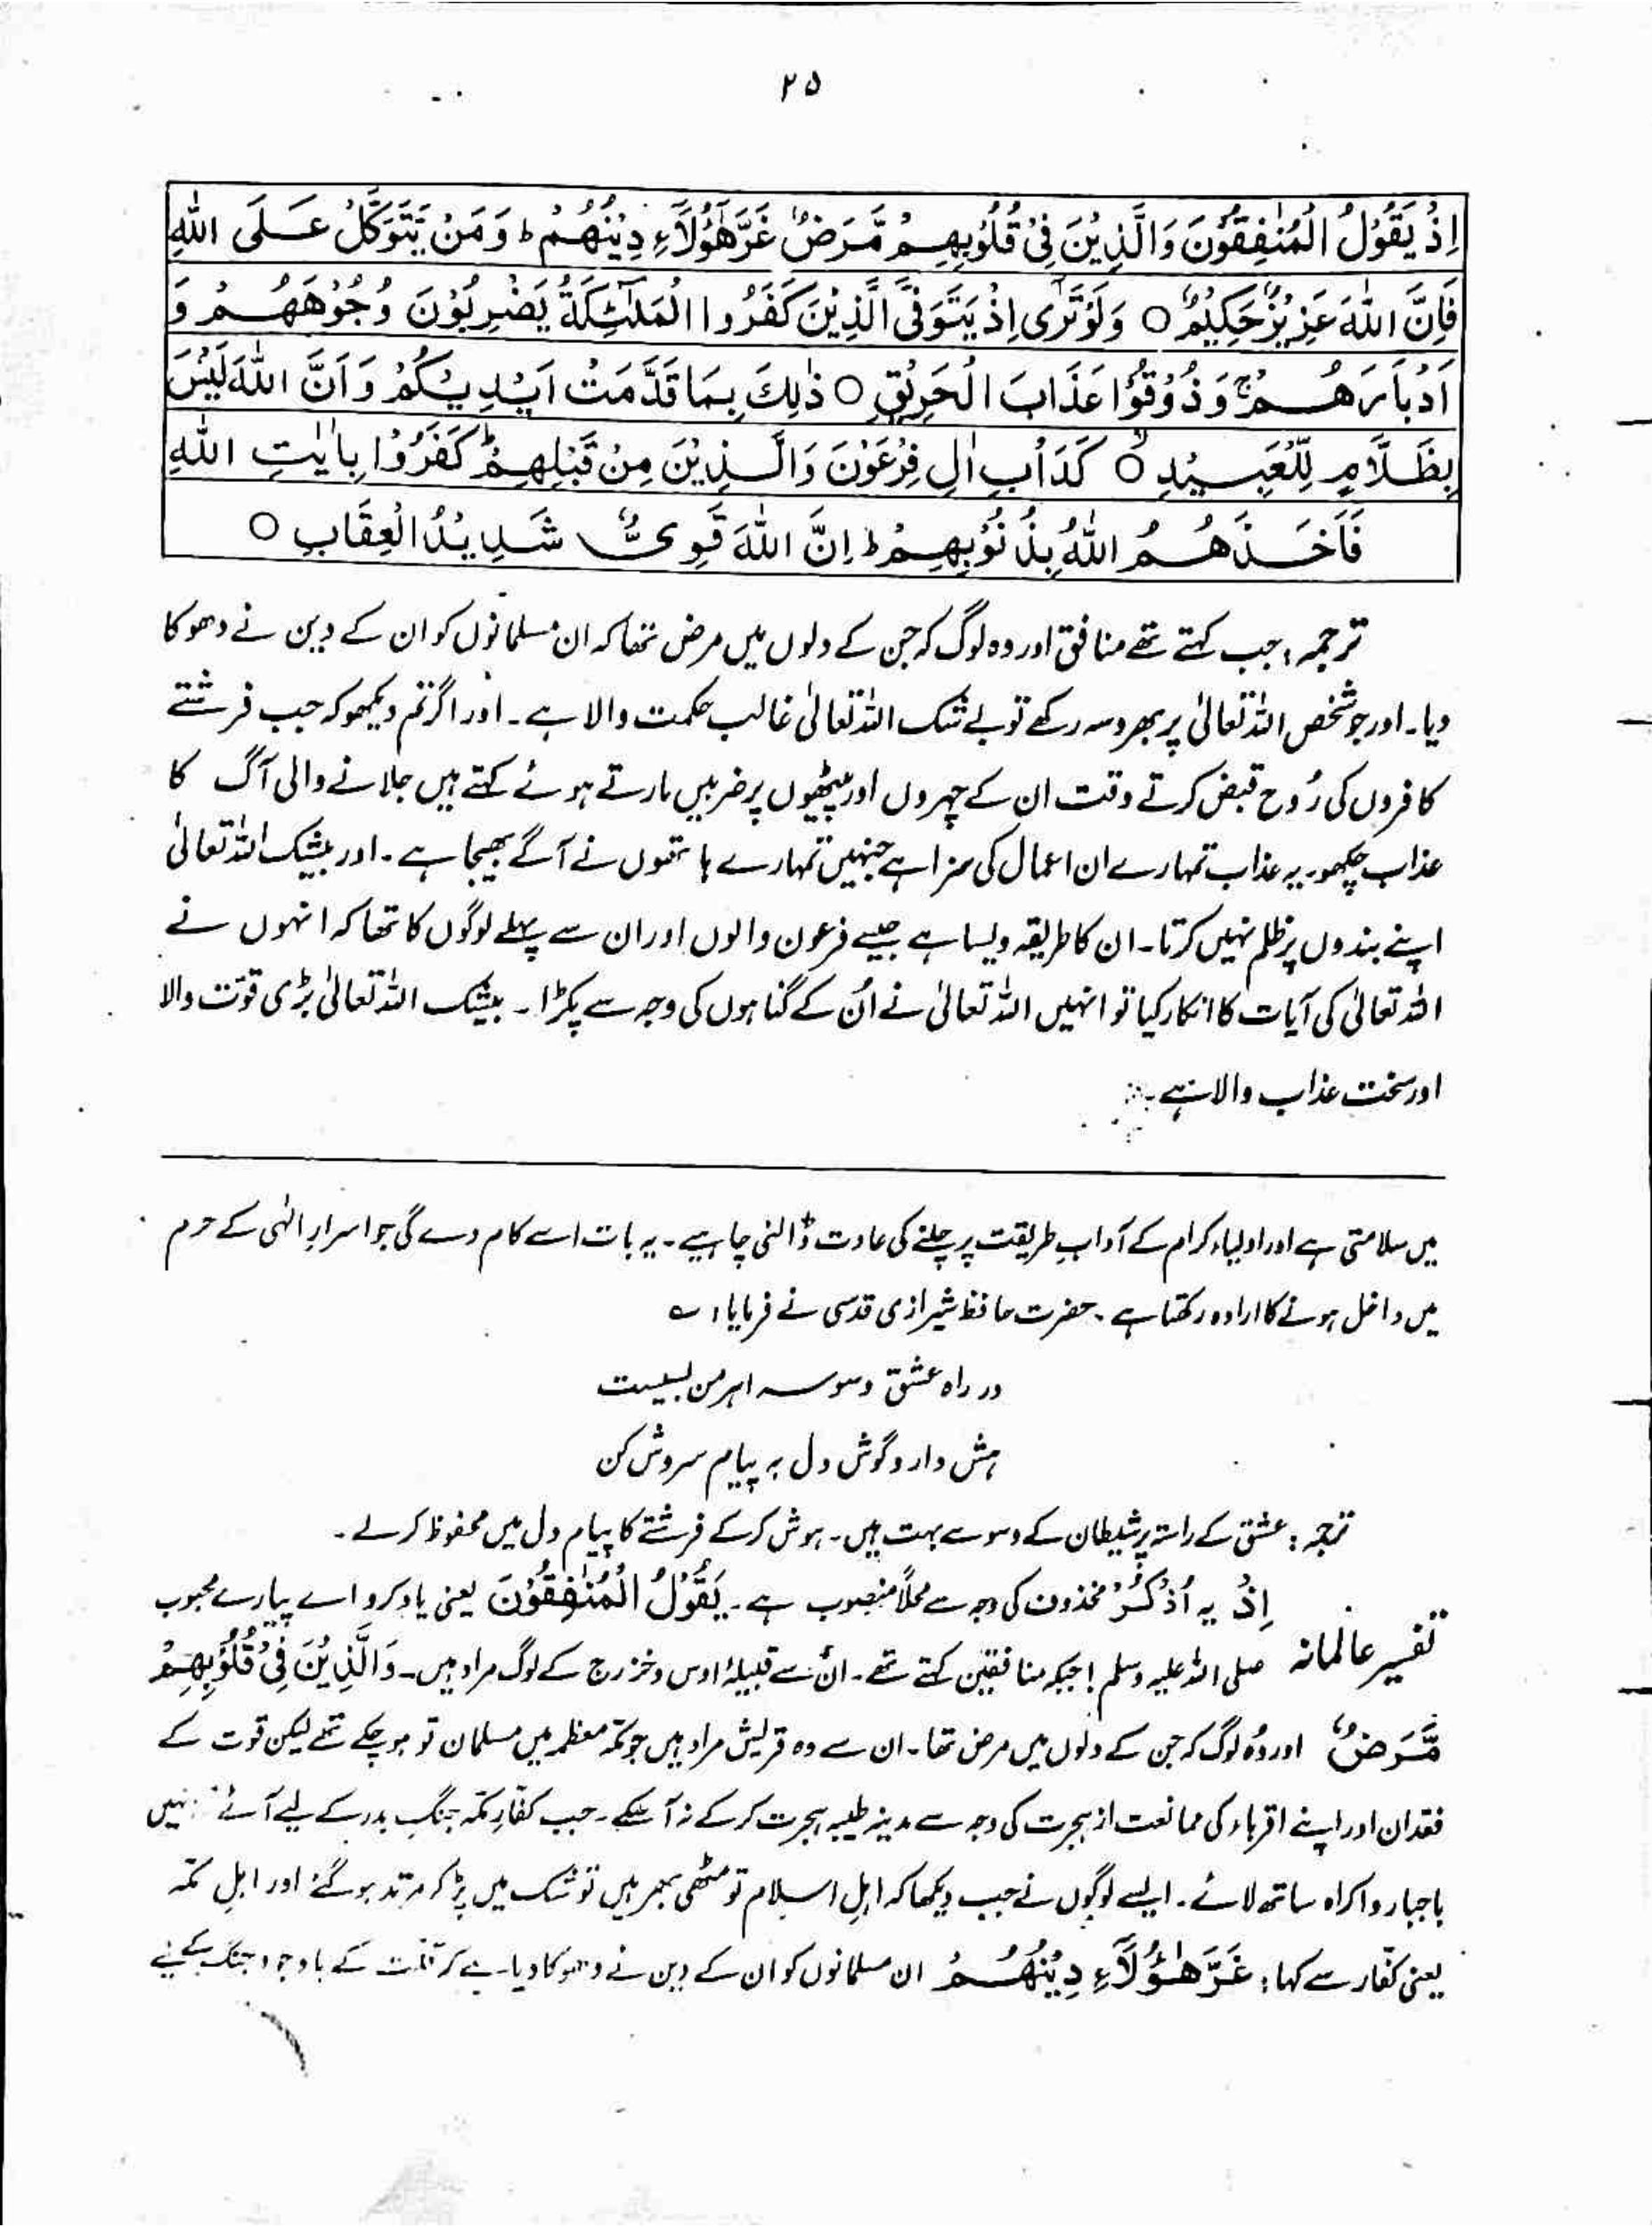 ۲۵
اِذْ يَقُوْلُ الْمُنٰفِقُوْنَ وَالَّذِيْنَ فِيْ قُلُوْبِهِمْ مَّرَضٌ غَرَّ هٰٓؤُلَآءِ دِيْنُهُمْ ط وَ مَنْ يَّتَوَكَّلْ عَلَى اللّٰهِ
فَاِنَّ اللّٰهَ عَزِيْزٌ حَكِيْمٌ ○ وَلَوْ تَرٰٓى اِذْ يَتَوَفَّى الَّذِيْنَ كَفَرُوا الْمَلٰٓئِكَةُ يَضْرِبُوْنَ وُجُوْهَهُمْ وَ
اَدْبَارَهُمْ ۚ وَ ذُوْقُوْا عَذَابَ الْحَرِيْقِ ○ ذٰلِكَ بِمَا قَدَّمَتْ اَيْدِيْكُمْ وَ اَنَّ اللّٰهَ لَيْسَ
بِظَلَّامٍ لِّلْعَبِيْدِ ○ كَدَاْبِ اٰلِ فِرْعَوْنَ وَالَّذِيْنَ مِنْ قَبْلِهِمْ ط كَفَرُوْا بِاٰيٰتِ اللّٰهِ
فَاَخَذَهُمُ اللّٰهُ بِذُنُوْبِهِمْ ط اِنَّ اللّٰهَ قَوِيٌّ شَدِيْدُ الْعِقَابِ ○
ترجمہ: جب کہتے تھے منافق اور وہ لوگ کہ جن کے دلوں میں مرض تھا کہ ان مسلمانوں کو ان کے دین نے دھوکا
دیا۔ اور جو شخص اللہ تعالیٰ پر بھروسہ رکھے تو بے شک اللہ تعالیٰ غالب حکمت والا ہے۔ اور اگر تم دیکھو کہ جب فرشتے
کافروں کی رُوح قبض کرتے وقت ان کے چہروں اور پیٹھوں پر ضربیں مارتے ہوئے کہتے ہیں جلانے والی آگ کا
عذاب چکھو۔ یہ عذاب تمہارے ان اعمال کی سزا ہے جنہیں تمہارے ہاتھوں نے آگے بھیجا ہے۔ اور بیشک اللہ تعالیٰ
اپنے بندوں پر ظلم نہیں کرتا۔ ان کا طریقہ ویسا ہے جیسے فرعون والوں اور ان سے پہلے لوگوں کا تھا کہ انہوں نے
اللہ تعالیٰ کی آیات کا انکار کیا تو انہیں اللہ تعالیٰ نے اُن کے گناہوں کی وجہ سے پکڑا۔ بیشک اللہ تعالیٰ بڑی قوّت والا
اور سخت عذاب والا ہے۔
میں سلامتی ہے اور اولیاء کرام کے آدابِ طریقت پر چلنے کی عادت ڈالنی چاہیے۔ یہ بات اسے کام دے گی جو اسرارِ الٰہی کے حرم
میں داخل ہونے کا ارادہ رکھتا ہے۔ حضرت حافظ شیرازی قدسی نے فرمایا: ؎
در راہ عشق وسوسہ اہرمن بسیست
ہش دار و گوش دل بہ پیام سروش کن
ترجمہ: عشق کے راستہ پر شیطان کے وسوسے بہت ہیں۔ ہوش کر کے فرشتے کا پیام دل میں محفوظ کر لے۔
تفسیر عالمانہ اِذْ یہ اُذْكُرْ محذوف کی وجہ سے محلاً منصوب ہے۔ يَقُوْلُ الْمُنٰفِقُوْنَ یعنی یاد کرو اے پیارے محبوب
صلی اللہ علیہ وسلم! جبکہ منافقین کہتے تھے۔ ان سے قبیلۂ اوس و خزرج کے لوگ مراد ہیں۔ وَالَّذِيْنَ فِيْ قُلُوْبِهِمْ
مَّرَضٌ اور وُہ لوگ کہ جن کے دلوں میں مرض تھا۔ ان سے وہ قریش مراد ہیں جو مکّہ معظمہ میں مسلمان تو ہو چکے تھے لیکن قوت کے
فقدان اور اپنے اقرباء کی ممانعت از ہجرت کی وجہ سے مدینہ طیبہ ہجرت کر کے نہ آ سکے۔ جب کفّارِ مکّہ جنگِ بدر کے لیے آئے انہیں
باجبار و اکراہ ساتھ لائے۔ ایسے لوگوں نے جب دیکھا کہ اہلِ اسلام تو مٹھی بھر ہیں تو شک میں پڑ کر مرتد ہو گئے اور اہلِ مکّہ
یعنی کفّار سے کہا: غَرَّ هٰٓؤُلَآءِ دِيْنُهُمْ ان مسلمانوں کو ان کے دین نے دھوکا دیا ہے کہ قلّت کے باوجود جنگ کے لیے